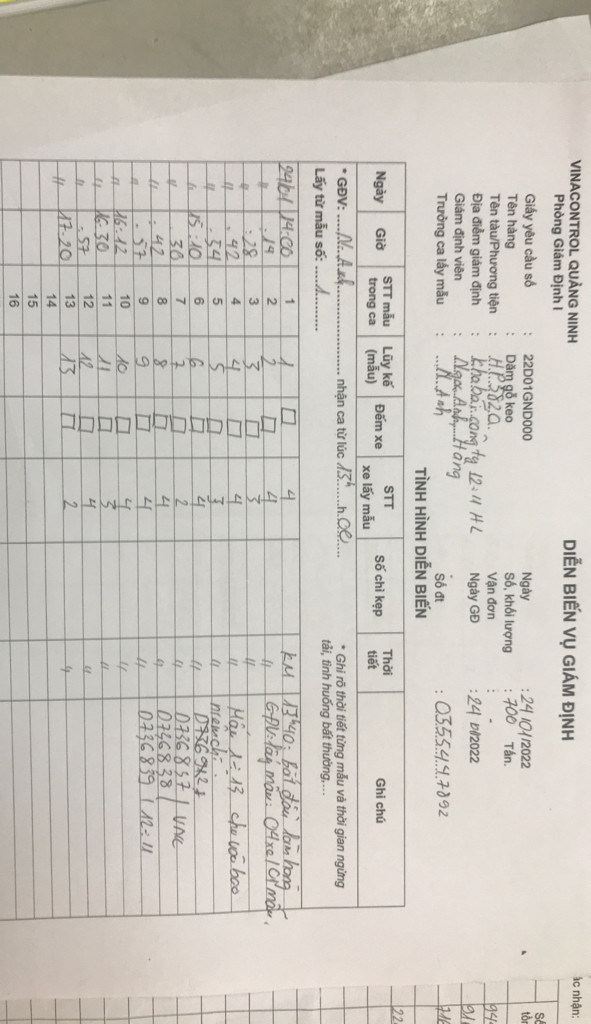 VINACONTROL QUẢNG NINH
Phòng Giám Định I
DIỄN BIẾN VỤ GIÁM ĐỊNH
Giấy yêu cầu số : 22D01GND000 Ngày : 24/01/2022
Tên hàng : Dăm gỗ keo Số, khối lượng : 700 Tấn.
Tên tàu/Phương tiện : Vận đơn : -
Địa điểm giám định : kho bãi công ty 12-11 HL Ngày GĐ : 24/01/2022
Giám định viên : Ngọc Anh, Hàng
Trưởng ca lấy mẫu : N. Anh Số đt : 0355447892
TÌNH HÌNH DIỄN BIẾN
* GĐV: N. Anh nhận ca từ lúc 13h h.00
Lấy từ mẫu số: 1
* Ghi rõ thời tiết từng mẫu và thời gian ngừng
tải, tình huống bất thường,...
Ngày Giờ STT mẫu trong ca Lũy kế (mẫu) Đếm xe STT xe lấy mẫu Số chì kẹp Thời tiết Ghi chú
24/01 14:00 1 1 □ 4 KM 13h40: bắt đầu làm hàng
" :14 2 2 □ 4 " GĐV: lấy mẫu: 04 xe/01 mẫu.
" :28 3 3 □ 3 "
" :42 4 4 □ 4 " Mẫu 1-13 cho vào bao
" :54 5 5 □ 3 " niêm chì:
" 15:10 6 6 □ 4 "
" :30 7 7 □ 2 " D736837 / VNC
" :42 8 8 □ 4 " D736838
" :57 9 9 □ 4 " D736839 / 12-11
" 16:12 10 10 □ 4 "
" 16:30 11 11 □ 3 "
" :57 12 12 □ 4 "
" 17:20 13 13 □ 2 "
14
15
16
ác nhận: